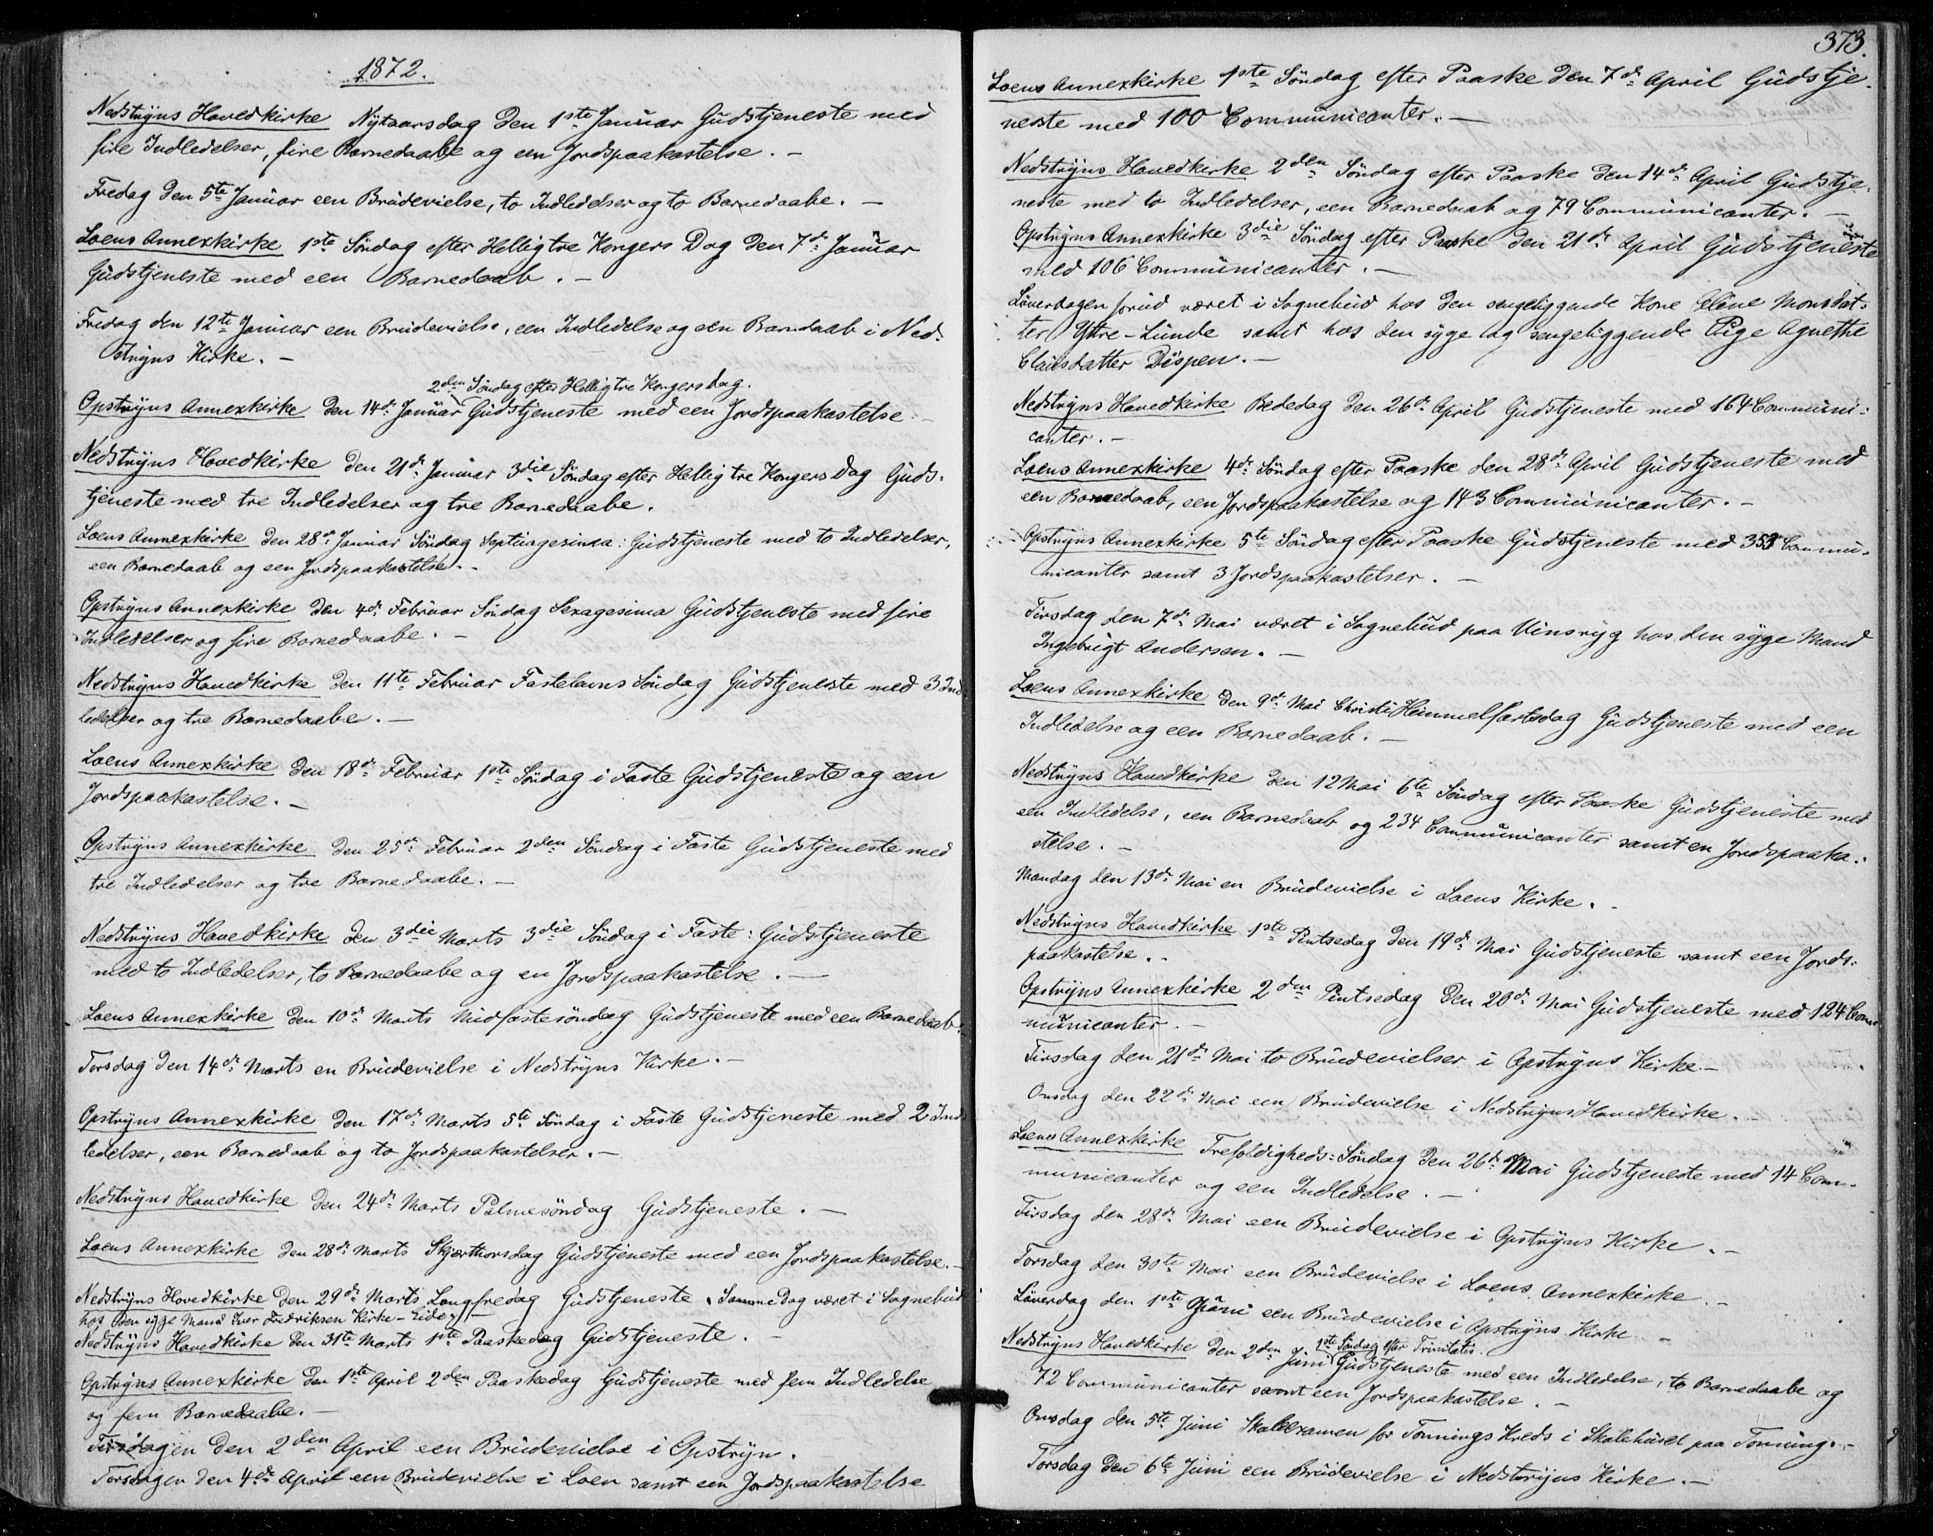 1872.
Nedstryns Hovedkirke Nytaarsdag den 1ste Januar Gudstjeneste med
fire Indledelser, fire Barnedaabe og een Jordspaakastelse. –
Fredag den 5te Januar een Brudevielse, to Indledelser og to Barnedaabe. –
Loens Annexkirke 1ste Søndag efter Helligtre Kongers Dag den 7de Januar
Gudstjeneste med een Barnedaab. –
Fredag den 12te Januar een Brudevielse, een Indledelse og een Barnedaab i Ned-
stryns Kirke. –
2den Søndag efter Helligtre Kongersdag.
Opstryns Annexkirke den 14de Januar Gudstjeneste med een Jordspaakastelse. –
Nedstryns Hovedkirke den 21de Januar 3die Søndag efter Helligtre Kongers Dag Guds-
tjeneste med tre Indledelser og tre Barnedaabe.
Loens Annexkirke den 28de Januar Søndag Septuagesima: Gudstjeneste med to Indledelser,
een Barnedaab og een Jordspaakastelse. –
Opstryns Annexkirke den 4de Februar Søndag Sexagesima Gudstjeneste med fire
Indledelser og fire Barnedaabe. –
Nedstryns Hovedkirke den 11te Februar Fastelavns Søndag Gudstjeneste med 3 Ind-
ledelser og tre Barnedaabe. –
Loens Annexkirke den 18de Februar 1ste Søndag i Faste Gudstjeneste og een
Jordspaakastelse. –
Opstryns Annexkirke den 25de Februar 2den Søndag i Faste Gudstjeneste med
tre Indledelser og tre Barnedaabe. –
Nedstryns Hovedkirke den 3die Marts 3die Søndag i Faste: Gudstjeneste
med to Indledelser, to Barnedaabe og en Jordspaakastelse. –
Loens Annexkirke den 10de Marts Midfastesøndag Gudstjeneste med een Barnedaab.
Torsdag den 14de Marts en Brudevielse i Nedstryns Kirke. –
Opstryns Annexkirke den 17de Marts 5te Søndag i Faste Gudstjeneste med 2 Ind-
ledelser, een Barnedaab og to Jordspaakastelser. –
Nedstryns Hovedkirke den 24de Marts Palmesøndag Gudstjeneste. –
Loens Annexkirke den 28de Marts Skjærthorsdag Gudstjeneste med een Jordspaakastelse. –
Nedstryns Hovedkirke den 29de Marts Langfredag Gudstjeneste. Samme Dag været i Sognebud
hos den syge Mand Iver Fredriksen Kirke-Eide. –
Nedstryns Hovedkirke den 31te Marts 1ste Paaskedag Gudstjeneste. –
Opstryns Annexkirke den 1ste April 2den Paaskedag Gudstjeneste med fem Indledelse
og fem Barnedaabe. –
Tirsdagen den 2den April een Brudevielse i Opstryn.
Torsdagen den 4de April een Brudevielse i Loen samt een Jordspaakastelse
373.
Loens Annexkirke 1ste Søndag efter Paaske den 7de April Gudstje-
neste med 100 Communicanter. –
Nedstryns Hovedkirke 2den Søndag efter Paaske den 14de April Gudstje-
neste med to Indledelser, een Barnedaab og 79 Communicanter. –
Opstryns Annexkirke 3die Søndag efter Paaske den 21de April Gudstjeneste
med 106 Communicanter. –
Løverdagen forud været i Sognebud hos den sengeliggende Kone Eline Monsdat-
ter Yttre-Lunde samt hos den syge og sengeliggende Pige Agnethe
Clausdatter Dispen. –
Nedstryns Hovedkirke Bededag den 26de April Gudstjeneste med 164 Communi-
canter. –
Loens Annexkirke 4de Søndag efter Paaske den 28de April Gudstjeneste med
een Barnedaab, een Jordspaakastelse og 143 Communicanter. –
Opstryns Annexkirke 5te Søndag efter Paaske Gudstjeneste med Commu-
nicanter samt 3 Jordspaakastelser. –
Tirsdag den 7de Mai været i Sognebud paa Vinsryg hos den syge Mand
Ingebrigt Andersen. –
Loens Annexkirke den 9de Mai Christi Himmelfartsdag Gudstjeneste med een
Indledelse og een Barnedaab. –
Nedstryns Hovedkirke den 12 Mai 6te Søndag efter Paaske Gudstjeneste med
en Indledelse, een Barnedaab og 234 Communicanter samt en Jordspaaka-
stelse. –
Mandag den 13de Mai en Brudevielse i Loens Kirke. –
Nedstryns Hovedkirke 1ste Pintsedag den 19de Mai Gudstjeneste samt een Jords-
paakastelse. –
Opstryns Annexkirke 2den Pintsedag den 20de Mai Gudstjeneste med 124 Com-
municanter. –
Tirsdag den 21de Mai to Brudevielser i Opstryns Kirke. –
Onsdag den 22de Mai een Brudevielse i Nedstryns Hovedkirke. –
Loens Annexkirke Trefoldigheds-Søndag den 26de Mai Gudstjeneste med 14 Com-
municanter og een Indledelse. –
Tirsdag den 28de Mai een Brudevielse i Opstryns Kirke. –
Torsdag den 30te Mai een Brudevielse i Loens Annexkirke. –
Løverdag den 1ste Juni een Brudevielse i Opstryns Kirke. –
1ste Søndag efter Trinitatis.
Nedstryns Hovedkirke den 2den Juni Gudstjeneste med een Indledelse, to Barnedaabe og
72 Communicanter samt een Jordspaakastelse. –
Onsdag den 5te Juni Skolexamen for Tonnings Kreds i Skolehuset paa Tonning. –
Torsdag den 6te Juni een Brudevielse i Nedstryns Kirke. –